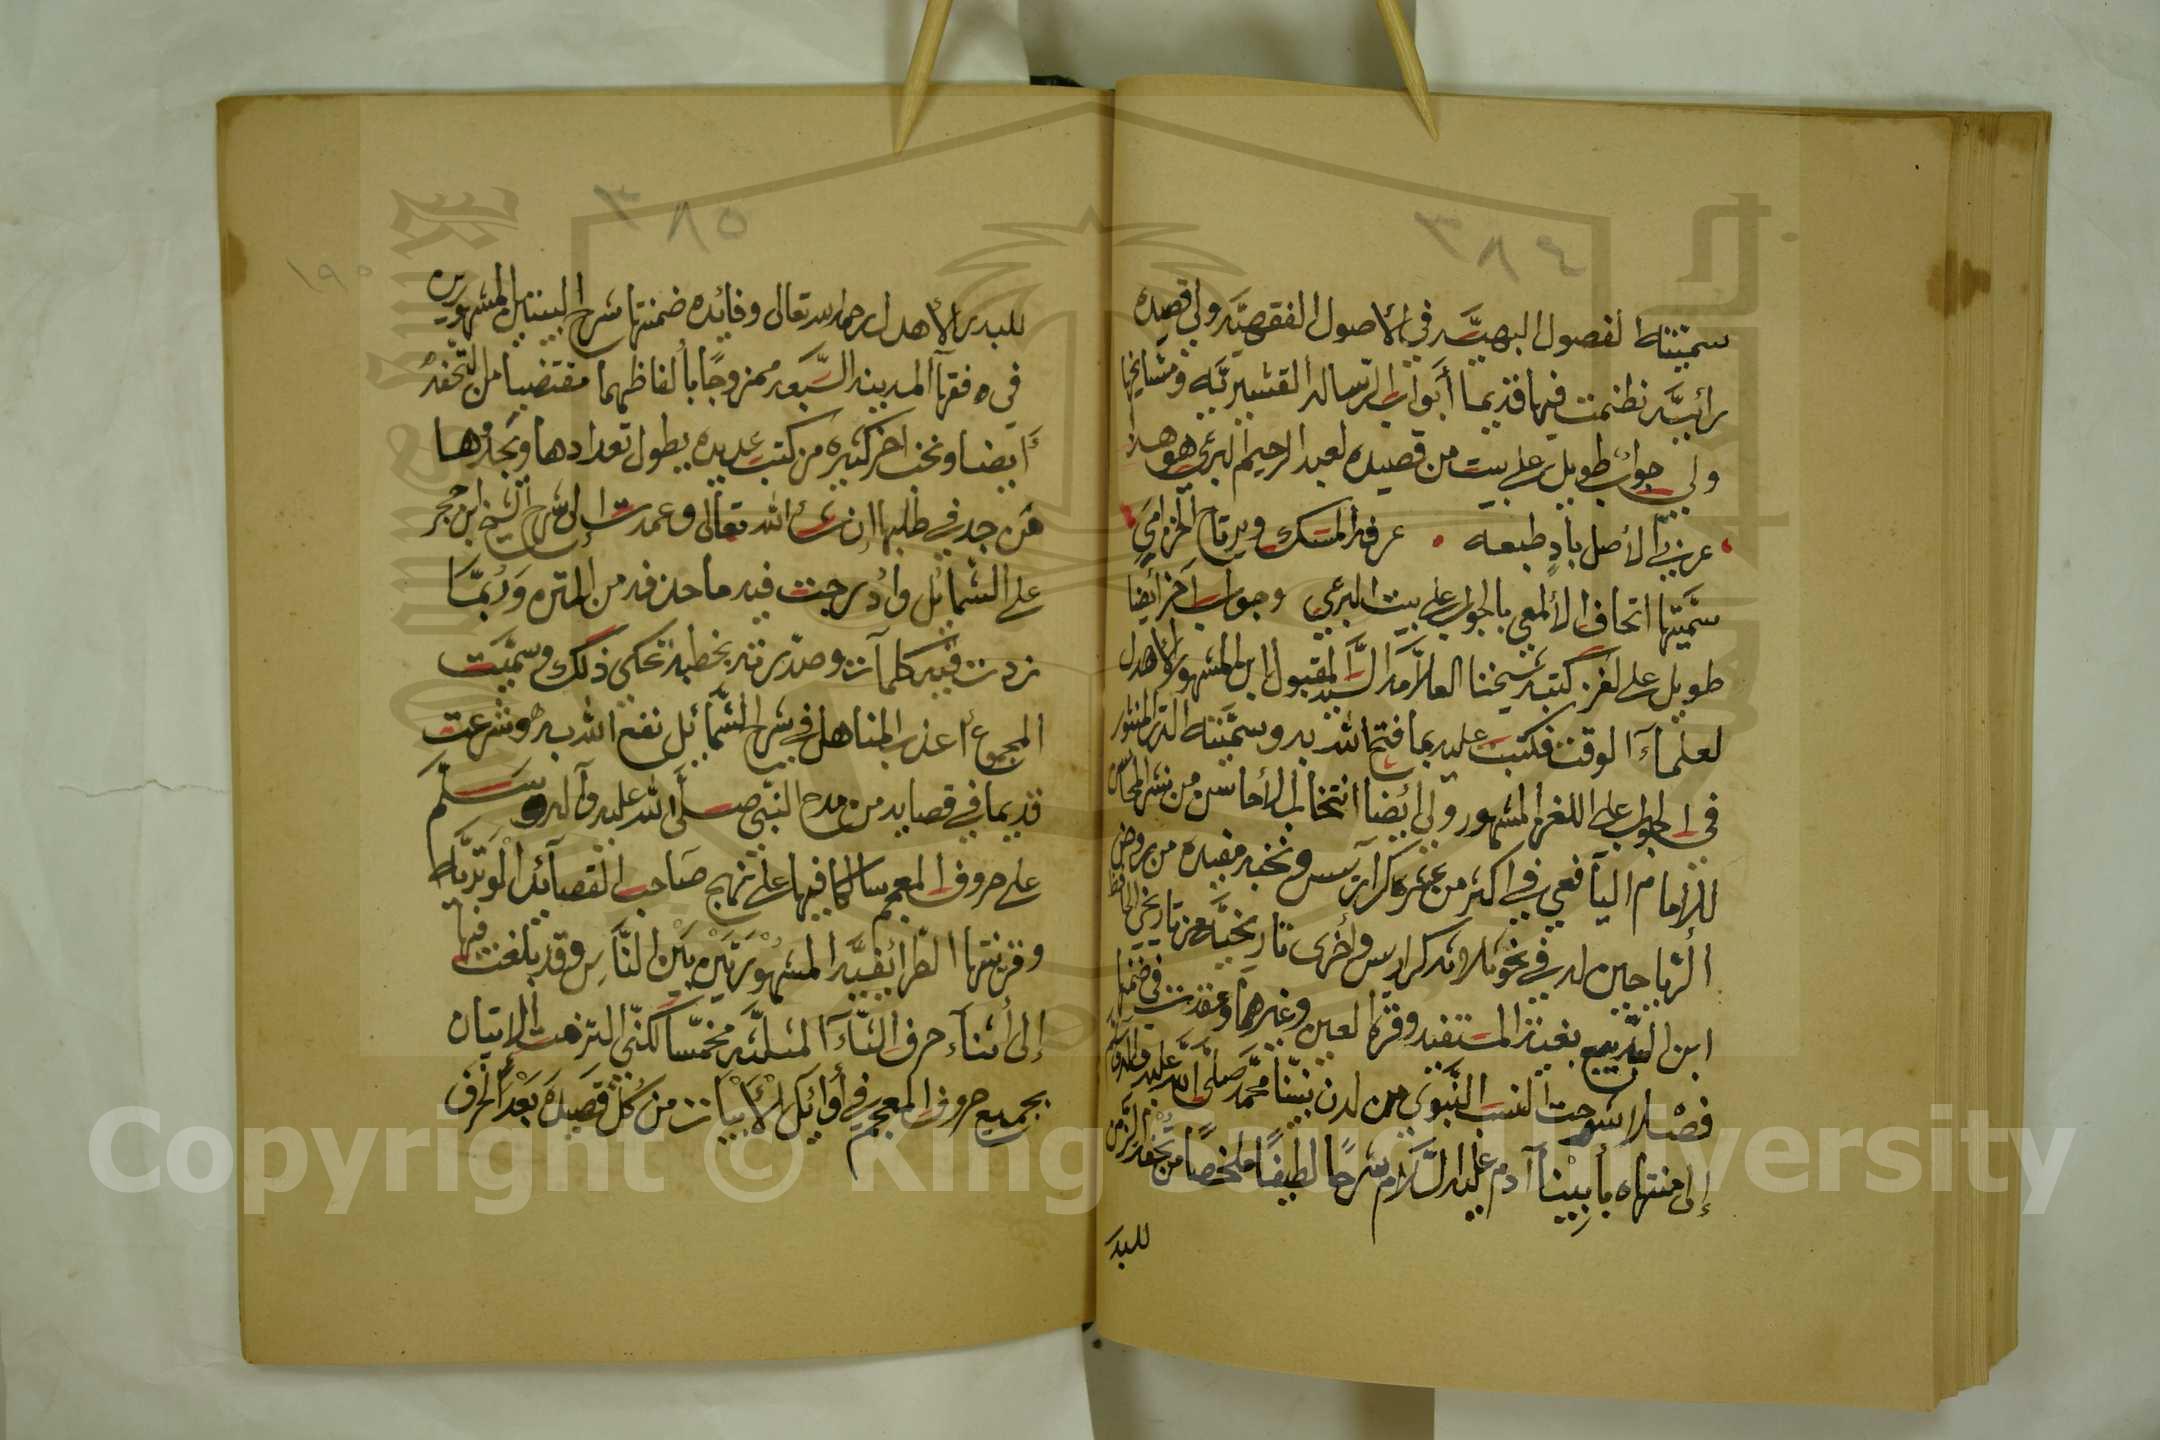 ٣٨٤
سميتها الفصول البهيّه في الأصول الفقهيّه ولي قصيده
رائيّه نظمت فيها قديما أبواب الرساله القشيريّه ومشايخها
ولي جواب طويل على بيت من قصيده لعبد الرحيم البرعي هو هذا
عربي الأصل بادٍ طبعه عرفه المسك ويرتاح الخزامي
سمّيتها اتحاف الألمعي بالجواب على بيت البرعي وجواب آخر أيضا
طويل على لغز كتبه شيخنا العلاّمه السيّد المقبول ابن المشهور الأهدل
لعلمآء الوقت فكتبت عليه بما فتح الله به وسمّيته الدر المنثور
في الجواب على اللغز المشهور ولي أيضا انتخاب الأحاسن من نشر المحاسن
للإمام اليافعي في اكثر من عشرة كراريس ونخبه مفيده من روض
الرياحين له في نحو ثلاثه كراريس وأخرى تاريخيّه من تاريخي الحافظ
ابن الديبع بغية المستفيد وقرة العين وغيرهما وعقدت في ضمنها
فصلا شرحت النسب النّبوي من لدن نبيّنا محمّد صلّى الله عليه وآله وسلم
إلى منتهاه بأبينا آدم عليه السّلام شرحا لطيفًا ملخصًا من تحفة الزمن
للبدر
٣٨٥
١٩٥
للبدر الأهدل رحمه الله تعالى وفايده ضمنتها شرح البيتين المشهورين
في فقهآ المدينه السّبعه ممزوجًا بألفاظهما مقتضبا من التحفه
أيضا ونخب اخر كثيره من كتب عديده يطول تعدادها ويجدها
من جد في طلبها إن شآء الله تعالى وعمدت إلى شرح الشيخ ابن حجر
على الشمائل وأدرجت فيه ما حذفه من المتن وربمّا
زدت فيه كلمات وصدّرته بخطبه تحكي ذلك وسمّيت
المجموع أعذب المناهل في شرح الشمّائل نفع الله به وشرعت
قديما في قصايد من مدح النبّي صلّى الله عليه وآله وسلم
على حروف المعجم سالكا فيها على نهج صاحب القصآئد الوتريّه
وقرينتها الطرائفيّه المشهورتين بين النّاس وقد بلغت فيها
إلى أثناء حرف الثّآء المثلثه مخمّسا لكنّي التزمت الاتيان
بجميع حروف المعجم في أوائل الأبيات من كل قصيدة بعد الحرف
Copyright © King Saud University